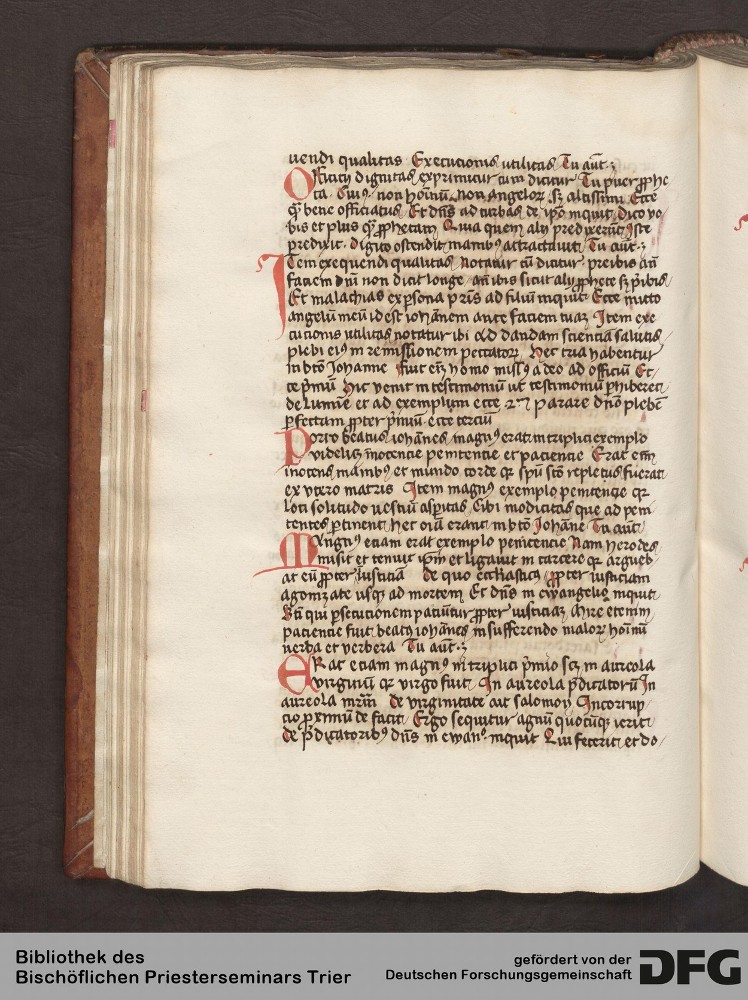 uendi qualitas Executionis utilitas Tu aut̄ ꝫ
Officij dignitas exprimitur cum dicitur Tu puer ꝓphe
ta. non hoīnū non Angeloꝝ sꝫ altissimi Ecce
bene officiatus Et dn̄s ad turbas de ip̄o inquit dico vo
bis et plus ꝓphetam Quia quem alij predixerūt Iste
predixit. digito ostendit manibꝰ attractauit Tu aut̄ ꝫ
Item exequendi qualitas Notatur cū dicitur preibis an̄
faciem dn̄i non dicit longe an̄ ibis sicut alij ꝓphete sꝫ p̄ibis
Et malachias ex ꝑsona pr̄is ad filiū inquit Ecce mitto
angelū meū id est iohānem ante faciem tuaꝫ Item exe
cutionis utilitas notatur ibi Ad dandam scientiā salutis
plebi eiꝰ in remissionem peccatoꝝ Hec tria habentur
in bto Iohanne fuit em̄ homo missꝰ a deo ad officiū Ec
ce p̄miū Hic venit in testimoniū ut testimoniū ꝑhiberet
de Lumine et ad exemplum ecce Parare dn̄o plebē
ꝑfectam ꝓpter p̄miū ecce terciū
Porro beatus iohānes magnꝰ erat in triplici exemplo
videlicꝫ inocentie penitentie et paciencie Erat em̄
inocens manibꝰ et mundo corde qꝛ spū scō repletus fuerat
ex vtero matris Item magnꝰ exemplo penitencie qꝛ
loci solitudo uestiū asꝑitas Cibi modicitas que ad peni
tentes ꝑtinent Hec oīa erant in bto Iohāne Tu aut̄
Magnꝰ eciam erat exemplo Nam Herodes
misit et tenuit ip̄m et ligauit in carcere qꝛ argueb
at eū ꝓpter Iusticiā de quo eccl̄iasticꝰ ꝓpter iusticiam
agonizate usqꝫ ad mortem Et dn̄s in ewangelio inquit
Bti qui ꝑsecutionem patiūtur ꝓpter iusticiaꝫ Mire etenim
paciencie fuit beatꝰ iohānes in sufferendo maloꝝ hoīnū
uerba et verbera Tu aut̄ ꝫ
Erat eciam magnꝰ in triplici p̄mio scꝫ in aureola
virginū qꝛ virgo fuit In aureola p̄dicatorū In
aureola mr̄m de virginitate ait salomon Incorrup
cio ꝓximū deo facit Ergo sequitur agnū quocūqꝫ ierit
de p̄dicatoribꝰ dn̄s in ewanᵒ inquit Qui fecerit et do
Bibliothek des
Bischöflichen Priesterseminars Trier
gefördert von der
Deutschen Forschungsgemeinschaft DFG